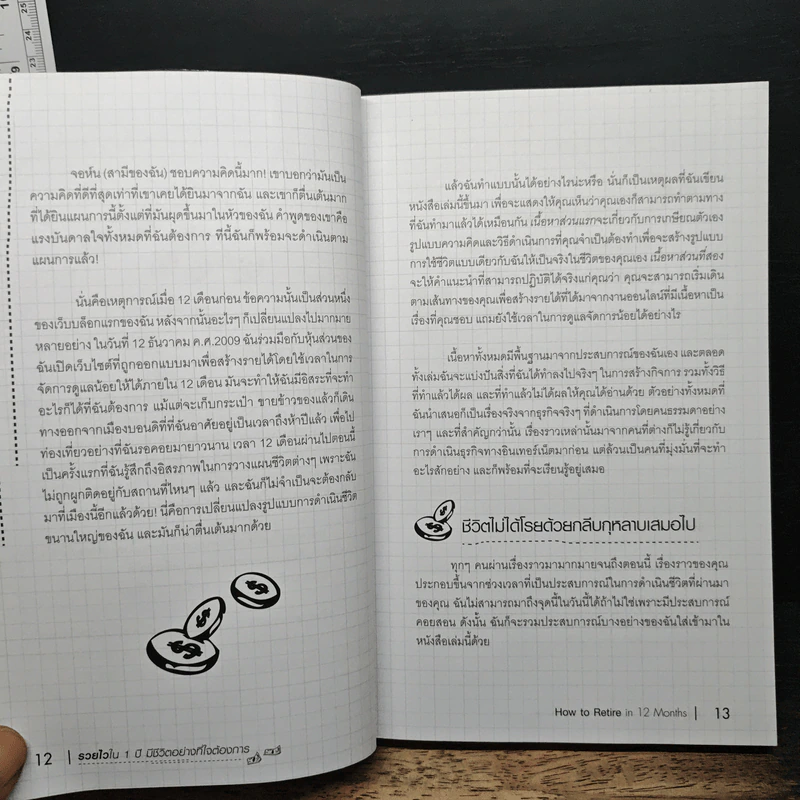 จอห์น (สามีของฉัน) ชอบความคิดนี้มาก! เขาบอกว่ามันเป็น
ความคิดที่ดีที่สุดเท่าที่เขาเคยได้ยินมาจากฉัน และเขาก็ตื่นเต้นมาก
ที่ได้ยินแผนการนี้ตั้งแต่ที่มันผุดขึ้นมาในหัวของฉัน คำพูดของเขาคือ
แรงบันดาลใจทั้งหมดที่ฉันต้องการ ทีนี้ฉันก็พร้อมจะดำเนินตาม
แผนการแล้ว!
นั่นคือเหตุการณ์เมื่อ 12 เดือนก่อน ข้อความนั้นเป็นส่วนหนึ่ง
ของเว็บบล็อกแรกของฉัน หลังจากนั้นอะไรๆ ก็เปลี่ยนแปลงไปมากมาย
หลายอย่าง ในวันที่ 12 ธันวาคม ค.ศ.2009 ฉันร่วมมือกับหุ้นส่วนของ
ฉันเปิดเว็บไซต์ที่ถูกออกแบบมาเพื่อสร้างรายได้โดยใช้เวลาในการ
จัดการดูแลน้อยให้ได้ภายใน 12 เดือน มันจะทำให้ฉันมีอิสระที่จะทำ
อะไรก็ได้ที่ฉันต้องการ แม้แต่จะเก็บกระเป๋า ขายข้าวของแล้วก็เดิน
ทางออกจากเมืองบอนดีที่ที่ฉันอาศัยอยู่เป็นเวลาถึงห้าปีแล้ว เพื่อไป
ท่องเที่ยวอย่างที่ฉันรอคอยมายาวนาน เวลา 12 เดือนผ่านไปตอนนี้
เป็นครั้งแรกที่ฉันรู้สึกถึงอิสรภาพในการวางแผนชีวิตต่างๆ เพราะฉัน
ไม่ถูกผูกติดอยู่กับสถานที่ไหนๆ แล้ว และฉันก็ไม่จำเป็นจะต้องกลับ
มาที่เมืองนี้อีกแล้วด้วย! นี่คือการเปลี่ยนแปลงรูปแบบการดำเนินชีวิต
ขนานใหญ่ของฉัน และมันก็น่าตื่นเต้นมากด้วย
12 | รวยไวใน 1 ปี มีชีวิตอย่างที่ใจต้องการ
แล้วฉันทำแบบนั้นได้อย่างไรน่ะหรือ นั่นก็เป็นเหตุผลที่ฉันเขียน
หนังสือเล่มนี้ขึ้นมา เพื่อจะแสดงให้คุณเห็นว่าคุณเองก็สามารถทำตามทาง
ที่ฉันทำมาแล้วได้เหมือนกัน เนื้อหาส่วนแรกจะเกี่ยวกับการเกษียณตัวเอง
รูปแบบความคิดและวิธีดำเนินการที่คุณจำเป็นต้องทำเพื่อจะสร้างรูปแบบ
การใช้ชีวิตแบบเดียวกับฉันให้เป็นจริงในชีวิตของคุณเอง เนื้อหาส่วนที่สอง
จะให้คำแนะนำที่สามารถปฏิบัติได้จริงแก่คุณว่า คุณจะสามารถเริ่มเดิน
ตามเส้นทางของคุณเพื่อสร้างรายได้ที่ได้มาจากงานออนไลน์ที่มีเนื้อหาเป็น
เรื่องที่คุณชอบ แถมยังใช้เวลาในการดูแลจัดการน้อยได้อย่างไร
เนื้อหาทั้งหมดมีพื้นฐานมาจากประสบการณ์ของฉันเอง และตลอด
ทั้งเล่มฉันจะแบ่งปันสิ่งที่ฉันได้ทำลงไปจริงๆ ในการสร้างกิจการ รวมทั้งวิธี
ที่ทำแล้วได้ผล และที่ทำแล้วไม่ได้ผลให้คุณได้อ่านด้วย ตัวอย่างทั้งหมดที่
ฉันนำเสนอก็เป็นเรื่องจริงจากธุรกิจจริงๆ ที่ดำเนินการโดยคนธรรมดาอย่าง
เราๆ และที่สำคัญกว่านั้น เรื่องราวเหล่านั้นมาจากคนที่ต่างก็ไม่รู้เกี่ยวกับ
การดำเนินธุรกิจทางอินเทอร์เน็ตมาก่อน แต่ล้วนเป็นคนที่มุ่งมั่นที่จะทำ
อะไรสักอย่าง และก็พร้อมที่จะเรียนรู้อยู่เสมอ
ชีวิตไม่ได้โรยด้วยกลีบกุหลาบเสมอไป
ทุกๆ คนผ่านเรื่องราวมามากมายจนถึงตอนนี้ เรื่องราวของคุณ
ประกอบขึ้นจากช่วงเวลาที่เป็นประสบการณ์ในการดำเนินชีวิตที่ผ่านมา
ของคุณ ฉันไม่สามารถมาถึงจุดนี้ในวันนี้ได้ถ้าไม่ใช่เพราะมีประสบการณ์
คอยสอน ดังนั้น ฉันก็จะรวมประสบการณ์บางอย่างของฉันใส่เข้ามาใน
หนังสือเล่มนี้ด้วย
How to Retire in 12 Months | 13